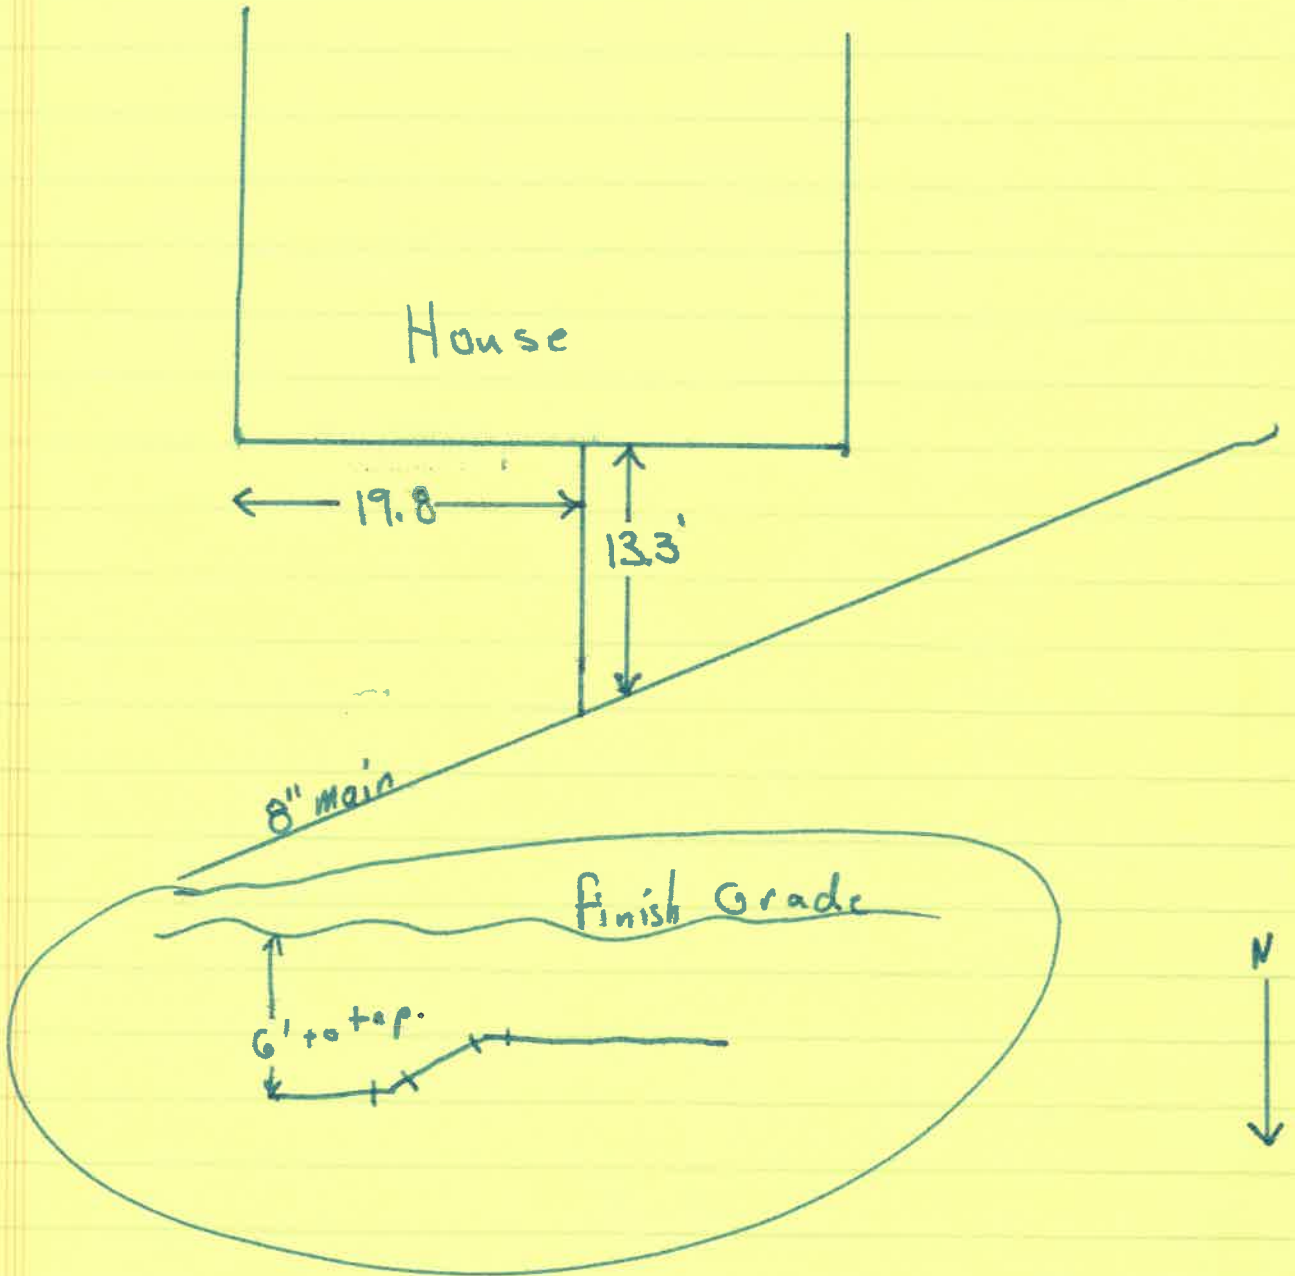 House
19.8
13.3'
8" main
Finish Grade
N
6' to top.